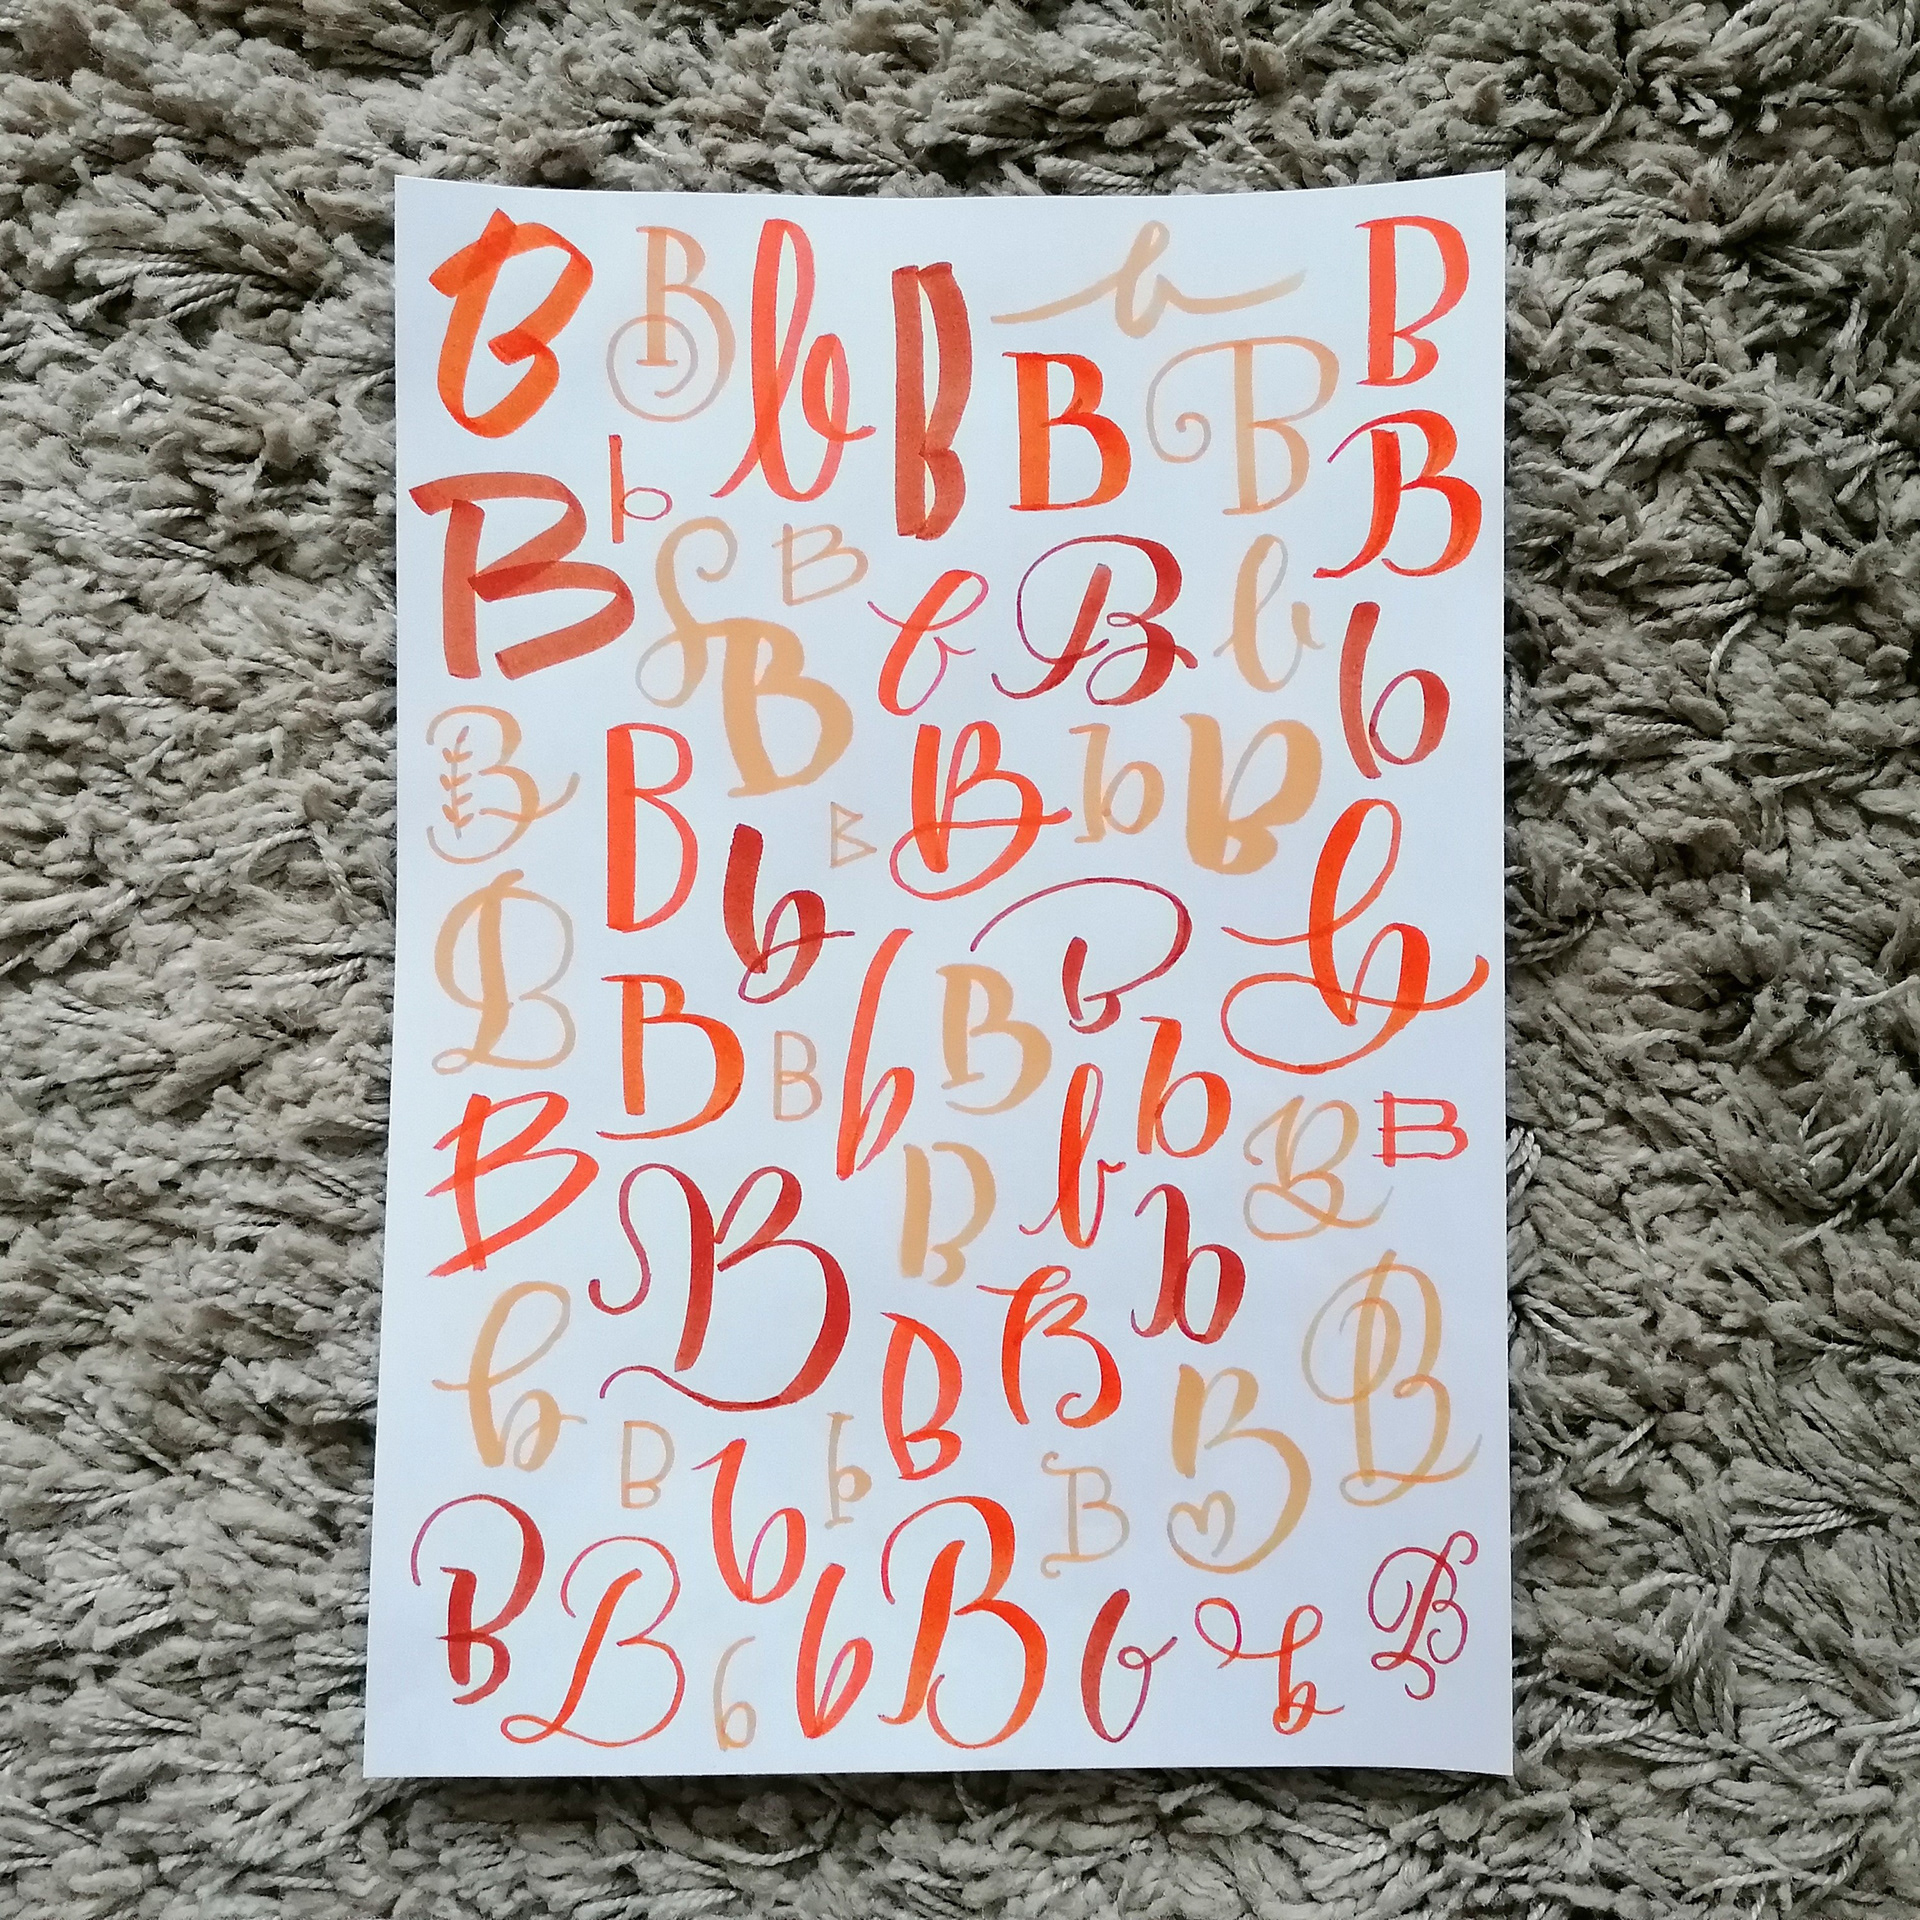 B B b B b B
B B B
B b B B b B b b
B B B B b B
B B b b
B B b B B b
B B b B b b B B
B B B b
b B B B B
B b b B
B B b b B b b B